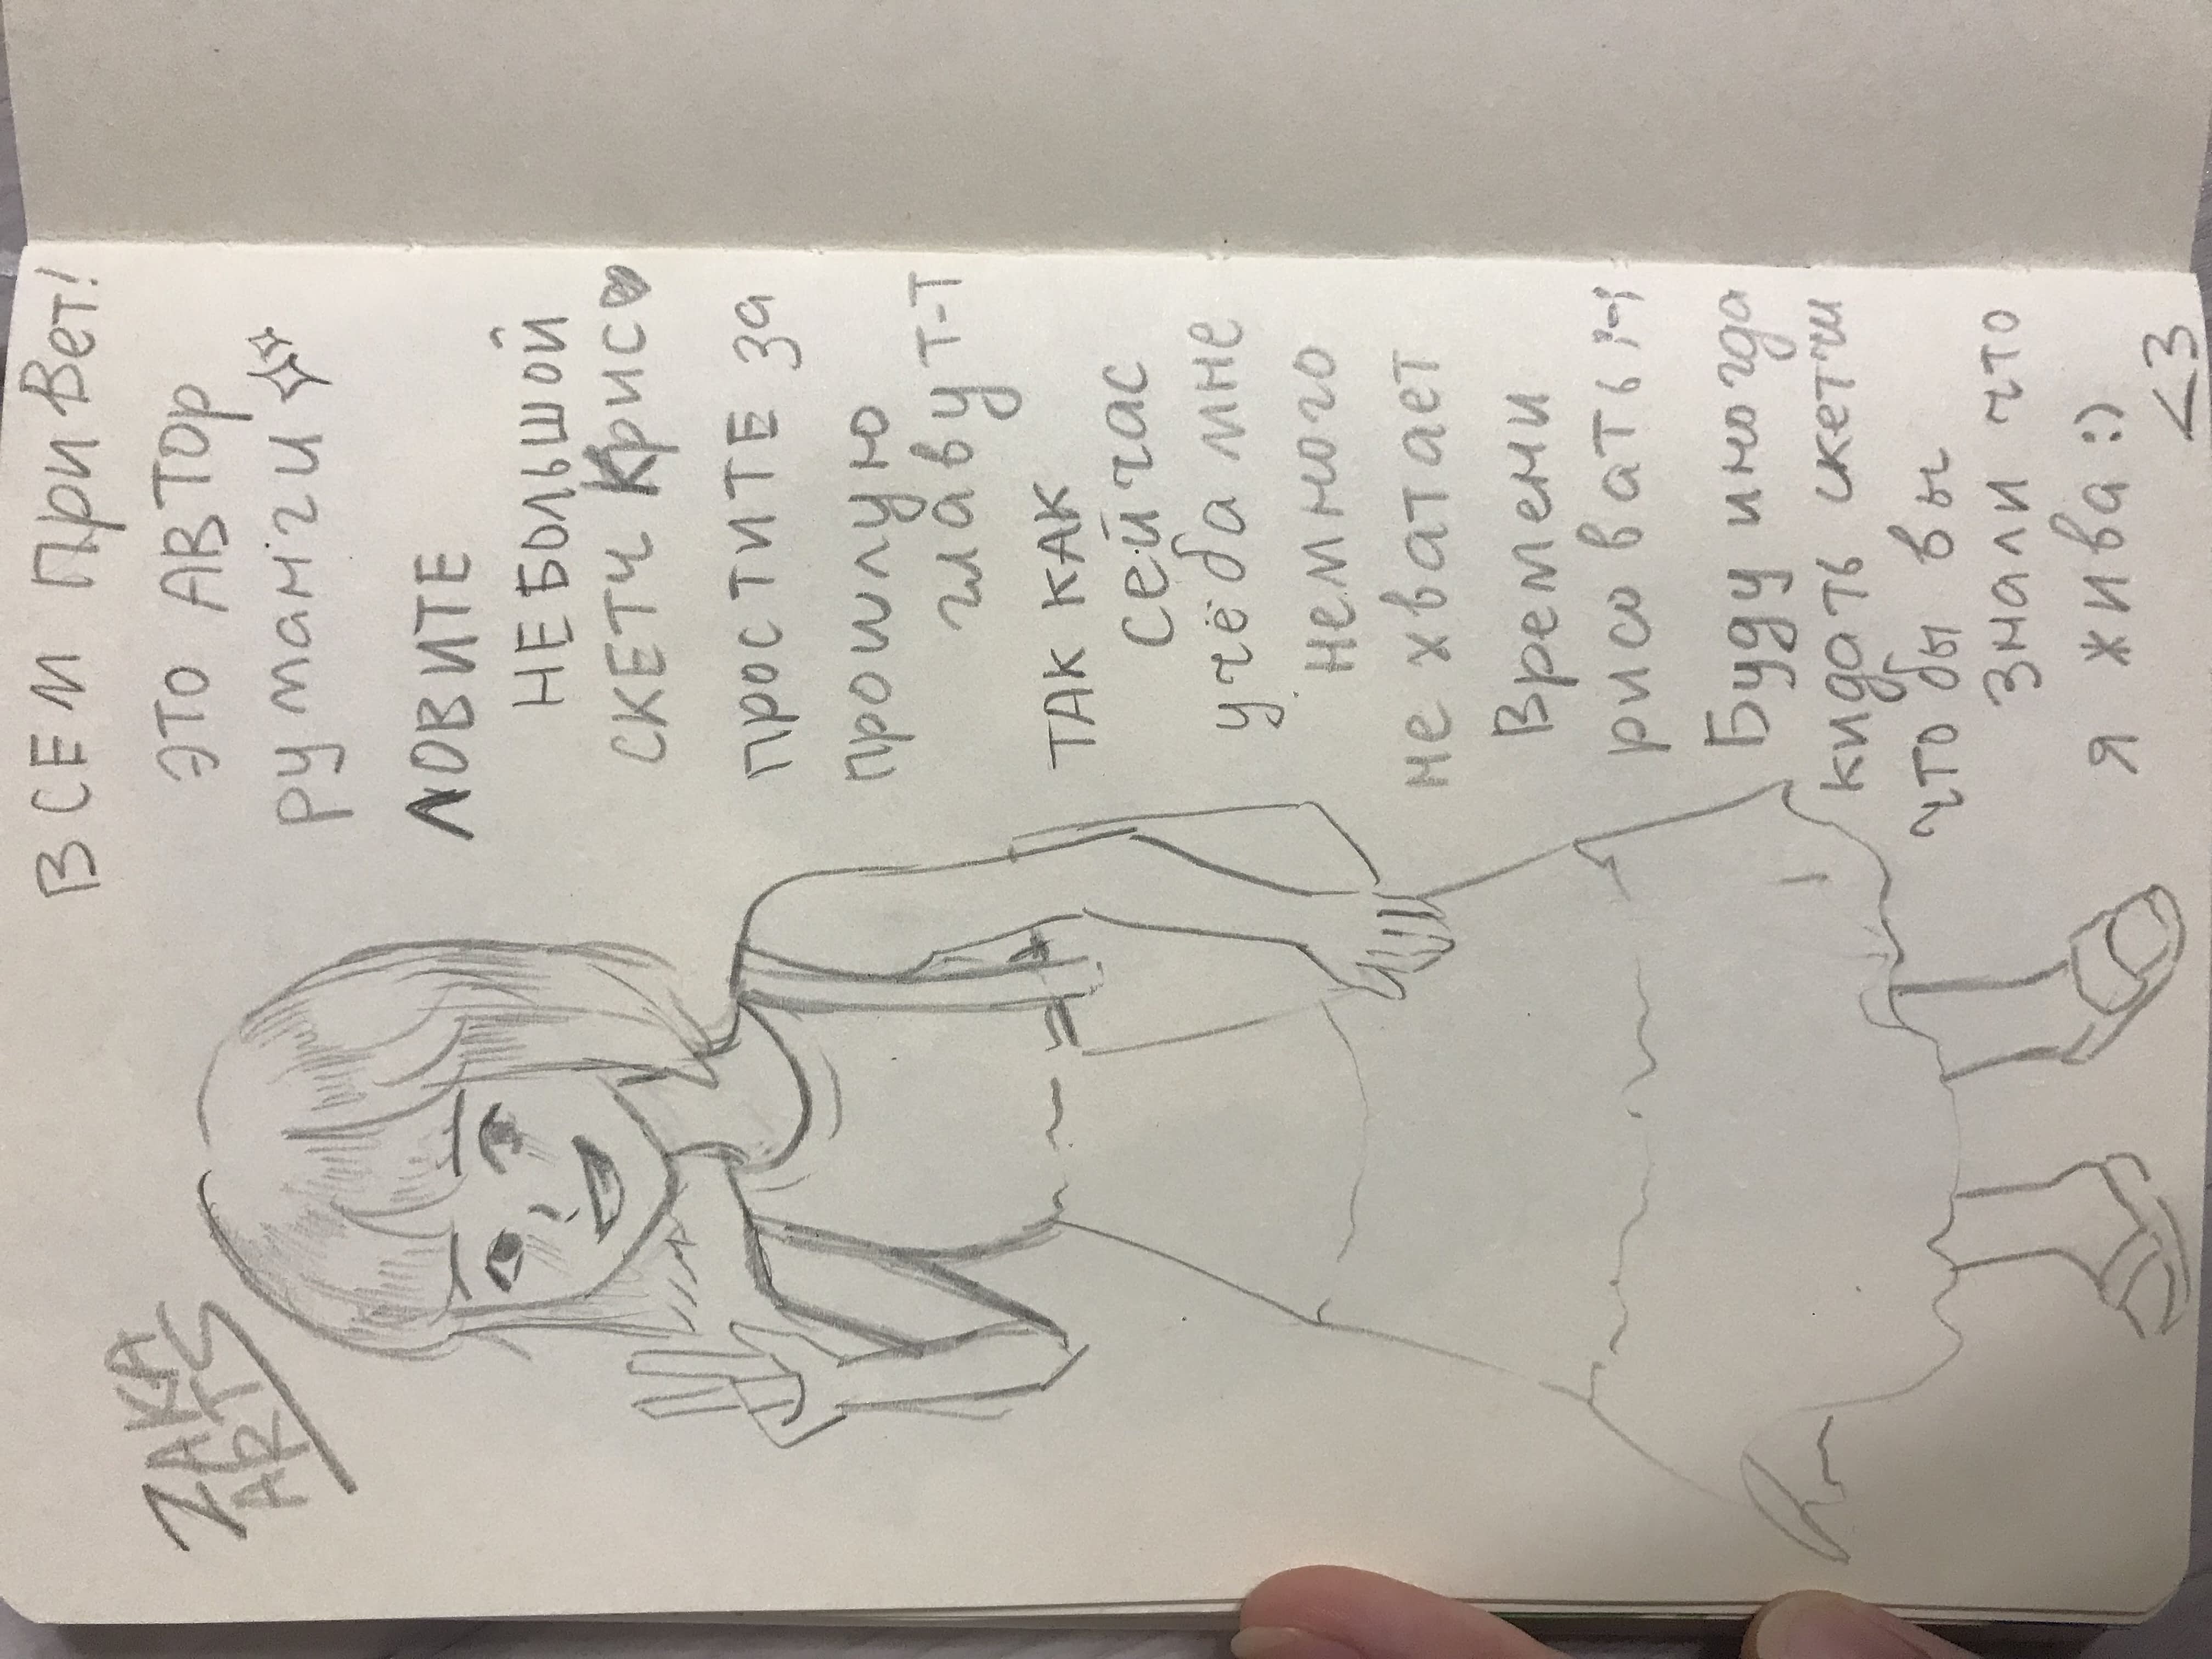 ZAKA
ARTS
ВСЕМ ПриВет!
ЭТО АВТОР
ру манги
ЛОВИТЕ
НЕБОЛЬШОЙ
СКЕТЧ Крис♥
ПРОСТИТЕ за
прошлую
главу Т-Т
ТАК КАК
сейчас
учёба мне
немного
не хватает
Времени
рисовать ;-;
Буду иногда
кидать скетчи
что бы вы
Знали что
я жива :)
<3